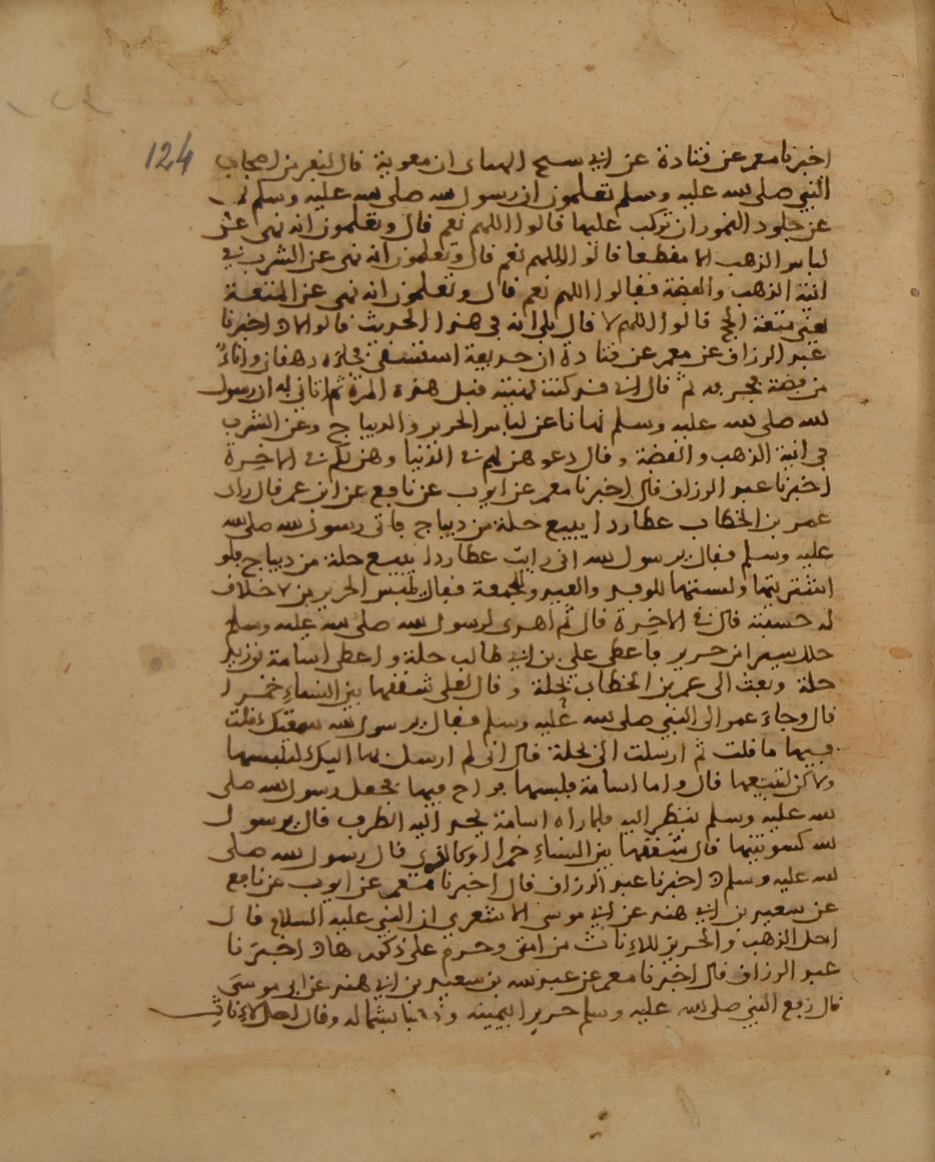 124
اخبرنا معمر عن قتادة عن ابي سيح الهناى ان معوية قال لنفر من اصحاب
النبي صلى الله عليه وسلم تعلمون ان رسول الله صلى الله عليه وسلم نهى
عن جلود النمور ان تركب عليها قالوا اللهم نعم قال وتعلمون انه نهى عن
لباس الذهب الا مقطعا قالوا اللهم نعم قال وتعلمون انه نهى عن الشرب في
انية الذهب والفضة فقالوا اللهم نعم قال وتعلمون انه نهى عن المتعة
يعني متعة الحج قالوا اللهم لا قال بلى انه في هذا الحديث قالوا لا اخبرنا
عبد الرزاق عن معمر عن قتادة ان حذيفة استسقى فجاءه دهقان باناء
من فضة فحذفه ثم قال اني قد كنت نهيته قبل هذه المرة ثم اتاني به ان رسول
الله صلى الله عليه وسلم نهانا عن لباس الحرير والديباج وعن الشرب
في انية الذهب والفضة وقال دعو هن لهم في الدنيا وهن لكم في الاخرة
اخبرنا عبد الرزاق قال اخبرنا معمر عن ايوب عن نافع عن ابن عمر قال راى
عمر بن الخطاب عطاردا يبيع حلة من ديباج فاتى رسول الله صلى الله
عليه وسلم فقال يرسول الله اني رايت عطاردا يبيع حلة من ديباج فلو
اشتريتها ولبستها للوفد والعيد وللجمعة فقال يلبس الحرير من لا خلاق
له حسبته قال في الاخرة قال ثم اهدى لرسول الله صلى الله عليه وسلم
حلل سيراء من حرير فاعطى علي بن ابي طالب حلة واعطى اسامة بن زيد
حلة وبعث الى عمر بن الخطاب بحلة وقال لعلي شققها بين النساء خمرا
قال وجاء عمر الى النبي صلى الله عليه وسلم فقال يرسول الله سمعتك قلت
فيها ما قلت ثم ارسلت الي بحلة قال اني لم ارسل بها اليك لتلبسها
ولاكن لتبيعها قال واما اسامة فلبسها فراح فيها فجعل رسول الله صلى
الله عليه وسلم ينظر اليه فلما راه اسامة يحد اليه الطرف قال يرسول
الله كسوتنيها قال شققها بين النساء خمرا او كالذي قال رسول الله صلى
الله عليه وسلم اخبرنا عبد الرزاق قال اخبرنا معمر عن ايوب عن نافع
عن سعيد بن ابي هند عن ابي موسى الاشعري ان النبي عليه السلام قال
احل الذهب والحرير للاناث من امتي وحرم على ذكورها اخبرنا
عبد الرزاق قال اخبرنا معمر عن عبد الله بن سعيد بن ابي هند عن ابي موسى
قال رفع النبي صلى الله عليه وسلم حريرا بيمينه وذهبا بشماله وقال احل لاناث